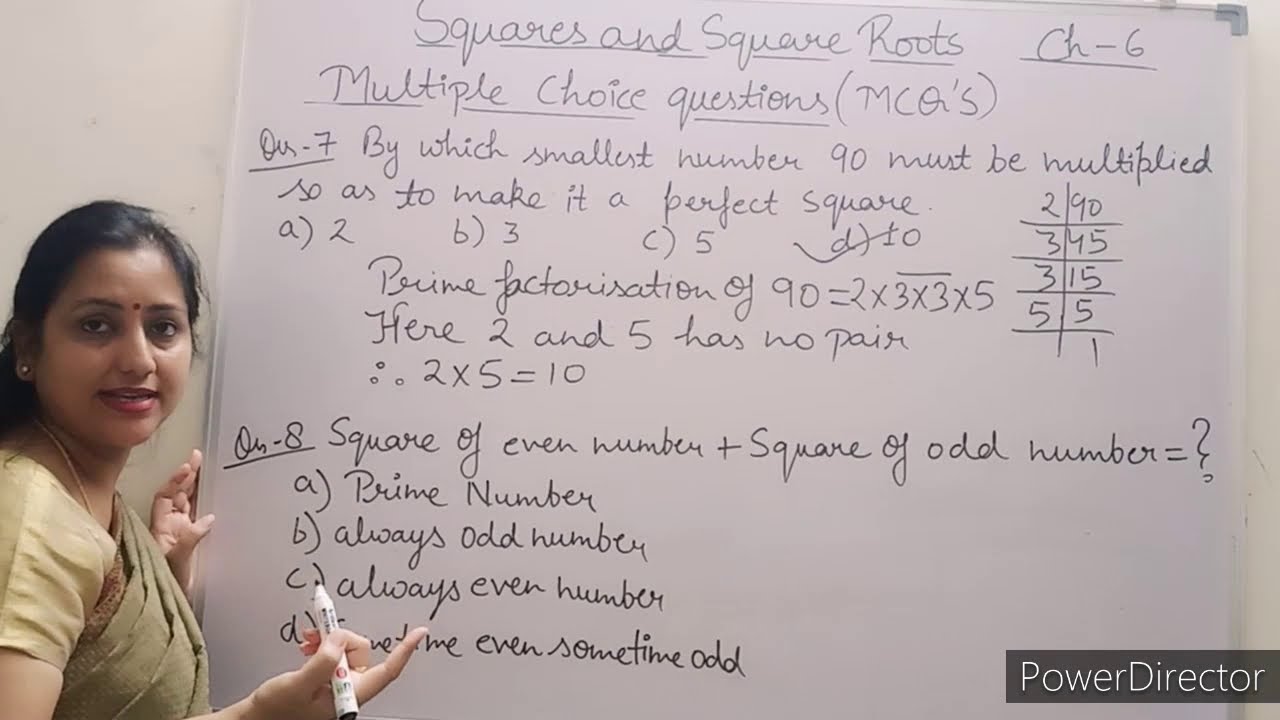 Squares and Square Roots Ch-6
Multiple Choice questions (MCQ'S)
Qus-7 By which smallest number 90 must be multiplied
so as to make it a perfect square.
a) 2 b) 3 c) 5 d) 10
2 90
3 45
3 15
5 5
1
Prime factorisation of 90=2×3×3×5
Here 2 and 5 has no pair
∴ 2×5=10
Qus-8 Square of even number + Square of odd number=?
a) Prime Number
b) always odd number
c) always even number
d) even sometime odd
PowerDirector